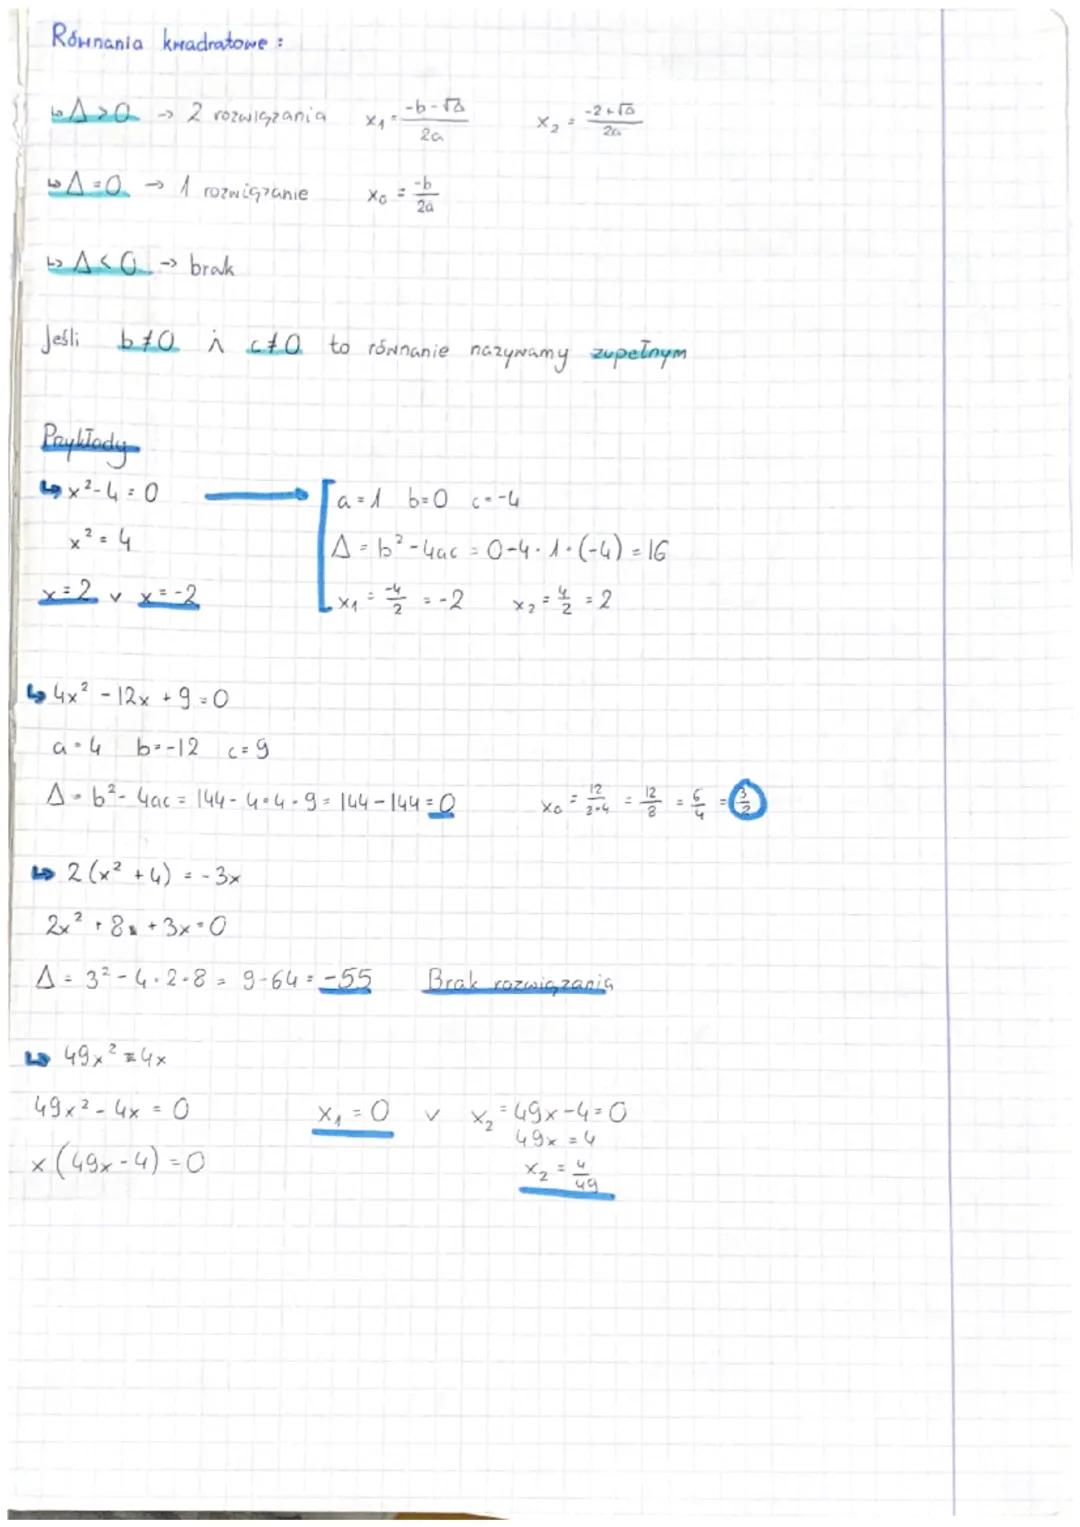 Równania kwadratowe:
↳ Δ>0 → 2 rozwiązania x₁ = \frac{-b-√Δ}{2a} x₂ = \frac{-2+√Δ}{2a}
↳ Δ=0 → 1 rozwiązanie x₀ = \frac{-b}{2a}
↳ Δ<0 → brak
Jeśli b≠0 i c≠0 to równanie nazywamy zupełnym
Przykłady
↳ x²-4=0 → a=1 b=0 c=-4
x²=4 Δ=b²-4ac=0-4·1·(-4)=16
x=2 v x=-2 x₁=\frac{-4}{2}=-2 x₂=\frac{4}{2}=2
↳ 4x²-12x+9=0
a=4 b=-12 c=9
Δ=b²-4ac=144-4·4·9=144-144=0 x₀=\frac{12}{2·4}=\frac{12}{8}=\frac{6}{4}=\frac{3}{2}
↳ 2(x²+4)=-3x
2x²+8+3x=0
Δ=3²-4·2·8=9-64=-55 Brak rozwiązania
↳ 49x²=4x
49x²-4x=0 x₁=0 v x₂=49x-4=0
49x=4
x(49x-4)=0 x₂=\frac{4}{49}